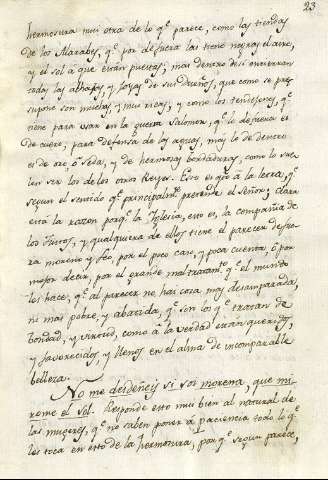 23
hermosura mui otra de lo q.e parece, como las tiendas
de los Alarabes, q.e por defuera las tiene negras el aire,
y el sol a que están puestas; mas dentro de si encierran
todas las alhajas y joyas de sus Dueños, que como se pre-
supone son muchas y mui ricas, y como los tendejones, q.e
tiene para usar en la guerra Salomon, q.e lo defuera es
de cuero, para defensa de las aguas, mas lo de dentro
es de oro, ó seda, y de hermosas bordaduras, como lo sue-
len ser los de los otros Reyes. Esto es q.to á la letra, q.e
segun el sentido q.e principalm.te pretende el Señor, clara
está la razon porq.e la Iglesia, esto es, la compañia de
los Justos, y qualquiera de ellos tiene el parecer defue-
ra moreno y feo, por el poco caso, y poca cuenta, ó por
mejor decir, por el grande mal tratam.to q.e el mundo
les hace, q.e al parecer no hai cosa mas desamparada,
ni mas pobre, y abatida, q.e son los q.e tratan de
bondad, y virtud, como á la verdad están queridos,
y favorecidos, y llenos en el alma de incomparable
belleza.
No me desdeñeis si soi morena, que mi-
rome el sol. Responde esto mui bien al natural de
las mugeres, q.e no saben poner á paciencia todo lo q.e
les toca en esto de la hermosura, porq.e segun parece,